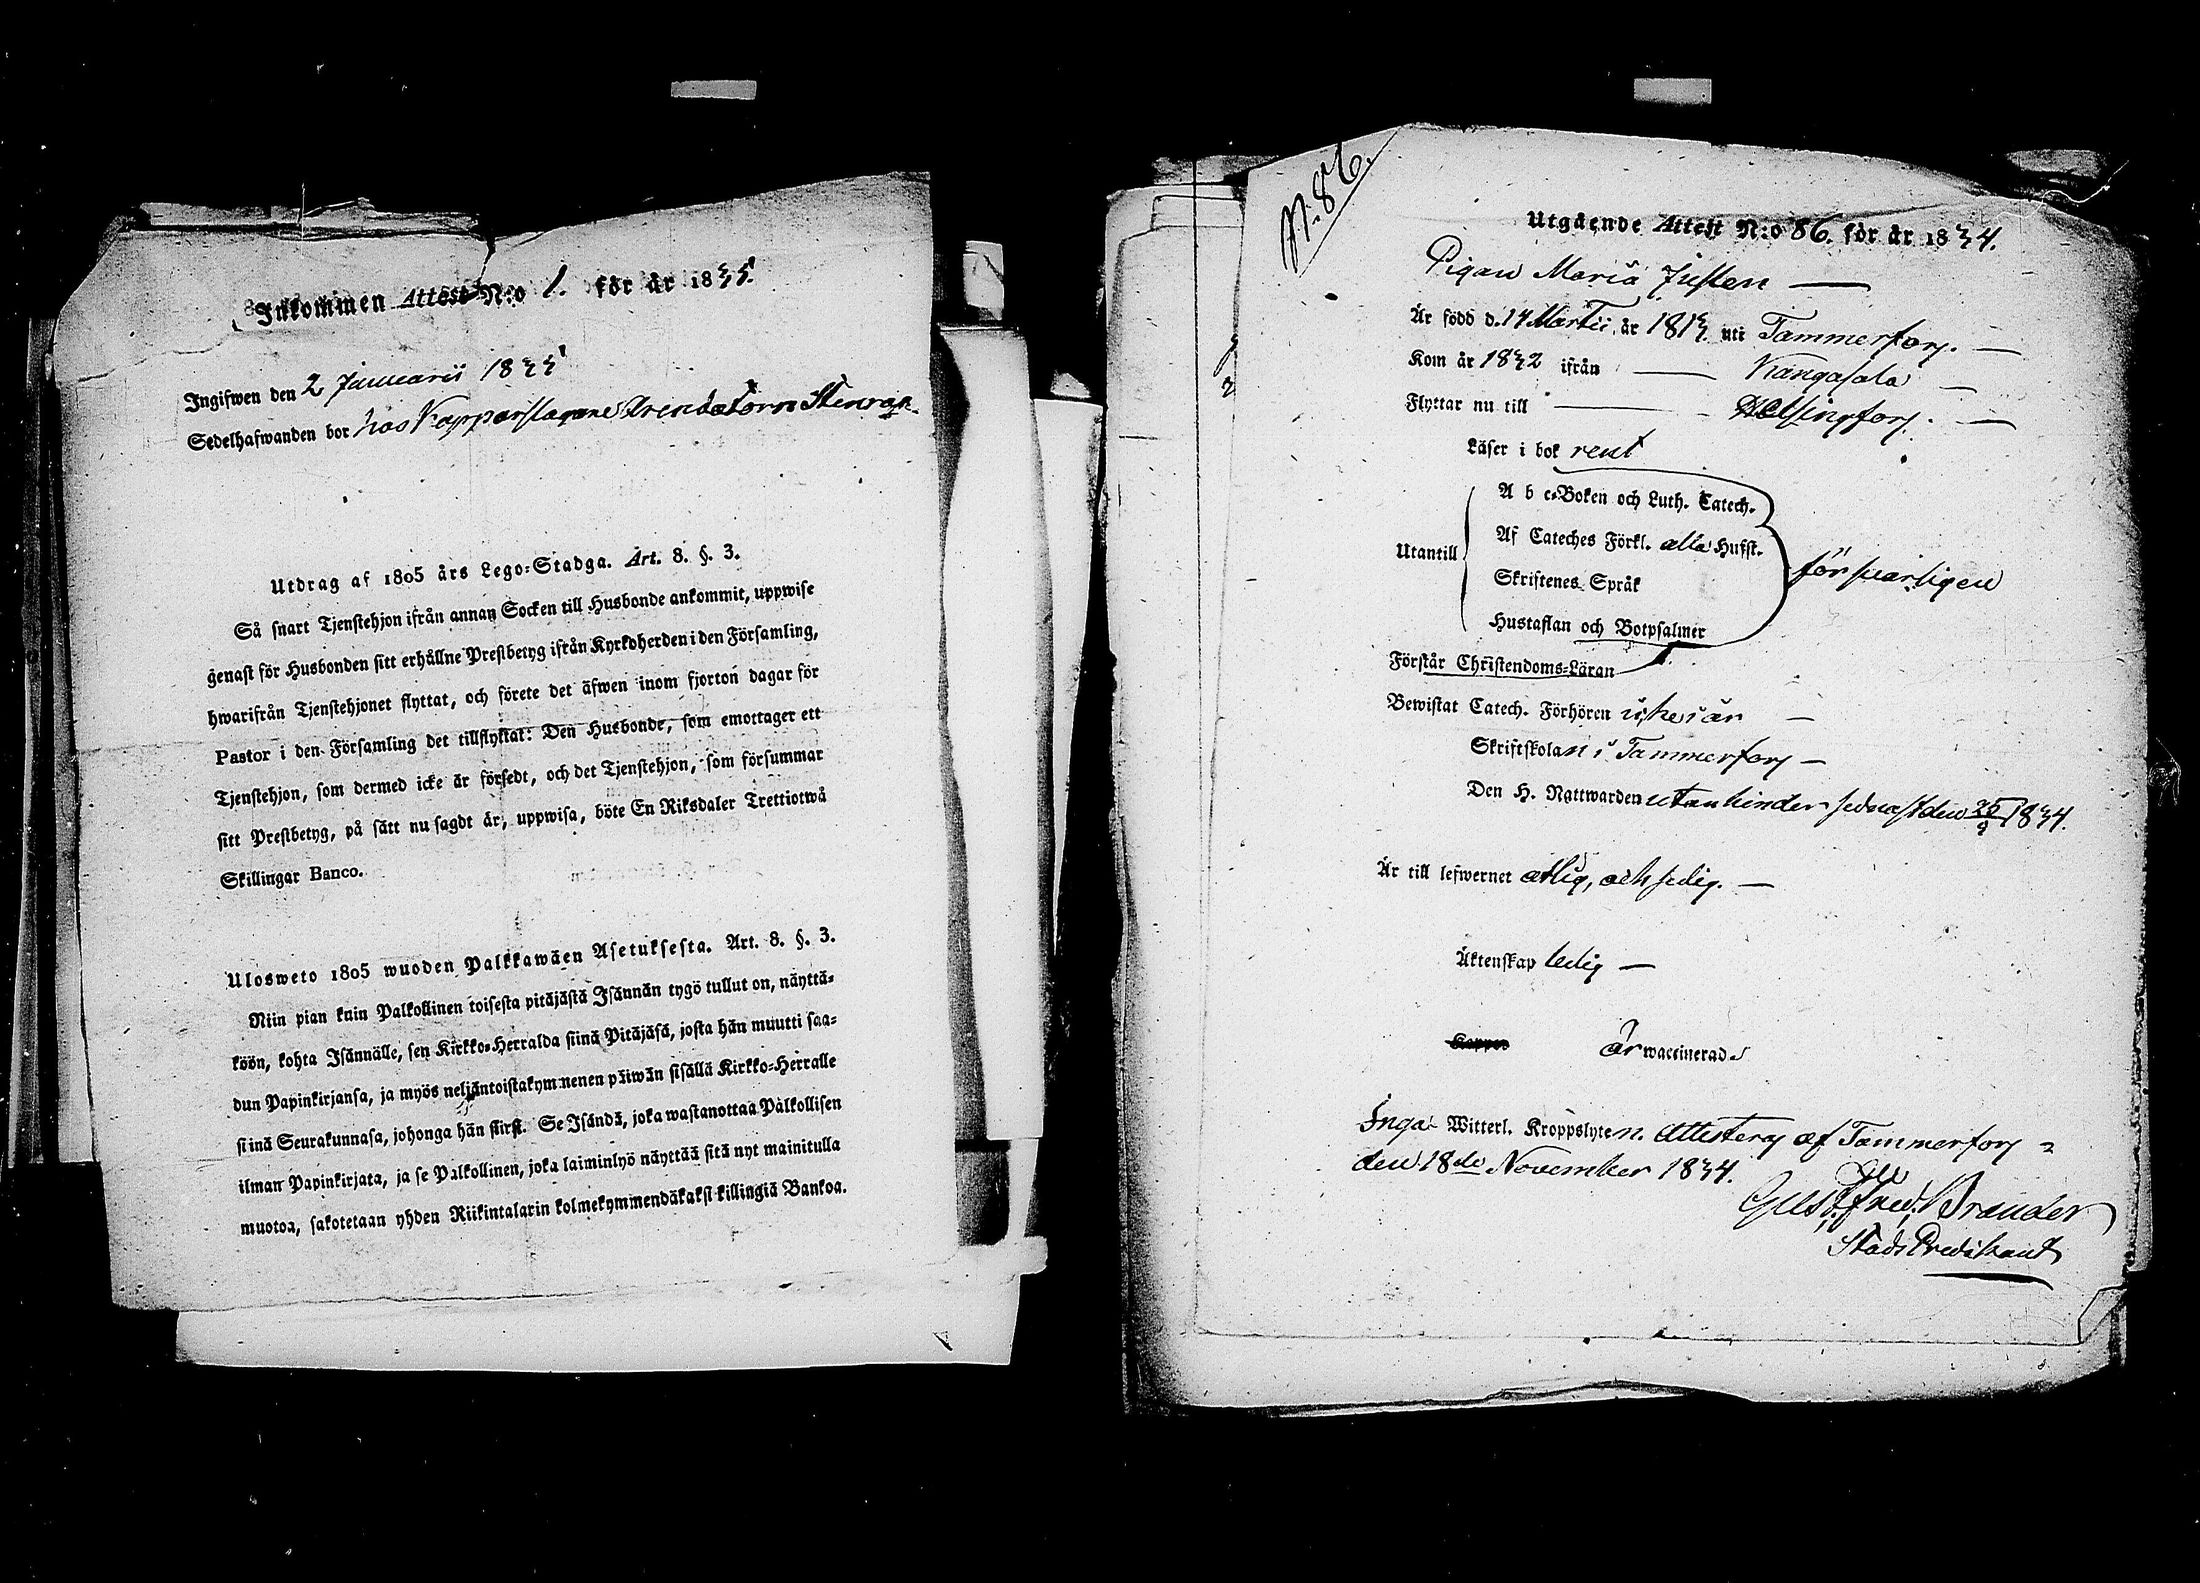 Inkommen Attest N:o 1. för år 1835.
Ingifwen den 2 Januarii 1835
Sedelhafwanden bor hos Kopparslagare Arendatorn
Utdrag af 1805 års Lego-Stadga. Art. 8. §. 3.
Så snart Tjenstehjon ifrån annan Socken till Husbonde ankommit, uppwise
genast för Husbonden sitt erhållne Prestbetyg ifrån Kyrkoherden i den Församling,
hwarifrån Tjenstehjonet flyttat, och förete det äfwen inom fjorton dagar för
Pastor i den Församling det tillflyttat: Den Husbonde, som emottager ett
Tjenstehjon, som dermed icke är försedt, och det Tjenstehjon, som försummar
sitt Prestbetyg, på sätt nu sagdt är, uppwisa, böte En Riksdaler Trettiotwå
Skillingar Banco.
Ulosweto 1805 wuoden Palkkawäen Asetuksesta. Art. 8. §. 3.
Niin pian kuin Palkollinen toisesta pitäjästä Isännän tygö tullut on, näyttä-
köön, kohta Isännälle, sen Kirkko-Herralda siinä Pitäjäsä, josta hän muutti saa-
dun Papinkirjansa, ja myös neljäntoistakymmenen päiwän sisällä Kirkko-Herralle
siinä Seurakunnasa, johonga hän siirst. Se Isändä, joka wastanottaa Palkollisen
ilman Papinkirjata, ja se Palkollinen, joka laiminlyö näyttää sitä nyt mainitulla
muotoa, sakotetaan yhden Riikintalarin kolmekymmendäkaksi killingiä Bankoa.
N:86.
Utgående Attest N:o 86. för år 1834.
Pigan Maria Justen
Är född d. 14 Martii, år 1813. uti Tammerfors.
Kom år 1832 ifrån Kangasala
Flyttar nu till Helsingfors.
Läser i bok rent
A b c-Boken och Luth. Catech.
Utantill Af Cateches Förkl. alla Hufst. försvarligen
Skriftenes Språk
Hustaflan och Botpsalmer
Förstår Christendoms-Läran
Bewistat Catech. Förhören icke i år
Skriftskolan i Tammerfors
Den H. Nattwarden utan hinder sednast den 28/9 1834.
Är till lefwernet ärlig, och sedig.
Äktenskap ledig
Koppor är waccinerad
Inga Witterl. Kroppslyten. Attesteras af Tammerfors
den 18de November 1834.
Gust. Fred. Brander
Stads Predikant